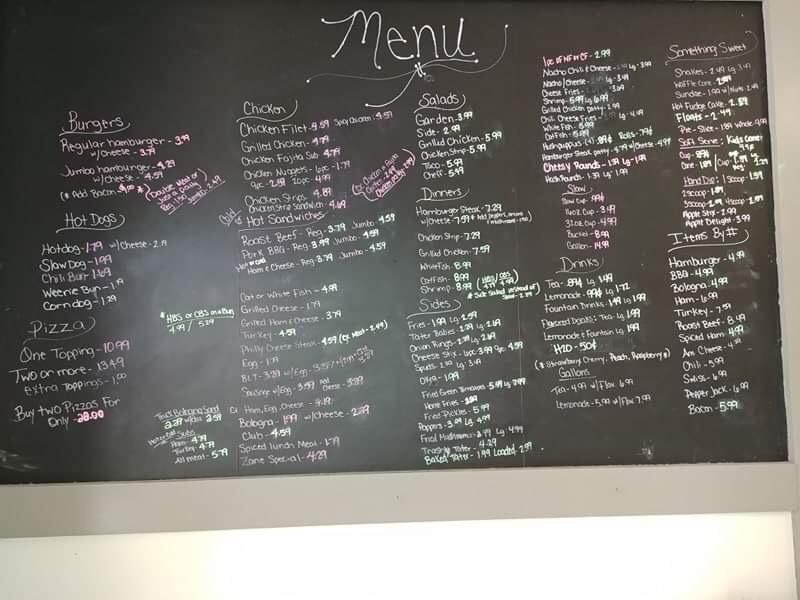 Menu
Burgers
Regular hamburger - 3.99
w/cheese - 3.79
Jumbo hamburger - 4.29
w/cheese - 4.59
(* Add Bacon
Hot Dogs
Hotdog - 1.79 w/cheese - 2.19
Slaw Dog - 1.99
Chili Bun - 1.69
Weenie Bun - 1.19
Corndog - 1.29
Pizza
One Topping - 10.99
Two or more - 13.49
Extra Toppings - 1.00
Buy two Pizzas For
Only - 22.00
* HBS or CBS on a Bun
4.99 / 5.29
Thick Bologna Sand
2.29 w/ch 2.59
Ham 4.79
Turkey 4.79
All meat - 5.79
Chicken
Chicken Filet - 4.59 Spicy Chicken - 4.59
Grilled Chicken - 4.79
Chicken Fajita Sub 4.79
Chicken Nuggets - 6pc - 1.79
9pc - 2.59 20pc - 4.99
Chicken Strips 4.89
Chicken Strip Sandwich - 4.69
Cold/Hot Sandwiches
Roast Beef - Reg 3.79 Jumbo 4.59
Pork BBQ - Reg 3.99 Jumbo - 4.59
Hot or cold
Ham & Cheese - Reg 3.79 Jumbo - 4.59
Cat or White Fish - 4.99
Grilled Cheese - 1.79
Grilled Ham & Cheese - 3.79
Turkey - 4.59
Philly Cheese Steak - 4.59 (ex Meat - 2.49)
Egg - 1.79
BLT - 3.29 w/Egg - 3.59
Sausage w/Egg - 3.59
Ham, Egg, Cheese
Bologna - 1.99 w/cheese - 2.09
Club - 4.59
Spiced lunch Meat - 1.79
Zone Special - 4.29
Salads
Garden - 3.99
Side - 2.99
Grilled Chicken - 5.99
Chicken Strip - 5.99
Taco - 5.99
Cheff - 5.49
Dinners
Hamburger Steak - 7.29
w/Cheese - 7.59
Chicken Strip - 7.29
Grilled Chicken - 7.59
Whitefish 8.99
Catfish 8.99
Shrimp - 8.99
* Side Salad instead of
Slaw - 2.29
Sides
Fries - 1.99 Lg 2.59
Tater Babies - 2.09 Lg - 2.69
Onion Rings - 2.29 Lg - 2.69
Cheese Stix - 6pc 3.99 9pc 4.59
Spuds - 2.99 Lg - 3.49
Okra - 1.99
Fried Green Tomatoes - 3.49 Lg 3.99
Home Fries - 2.89
Fried Pickles - 3.99
Poppers - 3.99 Lg 4.99
Fried Mushrooms - 3.99 Lg - 4.99
Trashy Tater - 4.29
Baked Tater - 1.99 Loaded - 2.59
1pc of WF or CF - 2.99
Nacho Chili & Cheese - 2.99 Lg - 3.99
Nacho/Cheese Lg - 3.49
Cheese Fries Lg - 3.09
Shrimp - 5.99 Lg 6.99
Grilled Chicken Patty - 2.99
Chili Cheese Fries Lg - 4.49
White Fish - 5.99
Catfish - 5.99
Hushpuppies (4) - .89¢ Rolls - .79¢
Hamburger Steak patty - 4.79 w/Cheese - 4.99
Cheesy Rounds - 1.39 Lg - 1.99
Hash Rounds - 1.39 Lg - 1.99
Slaw
Slaw Cup .99¢
16oz Cup 3.49
32oz Cup - 4.99
Bucket - 8.99
Gallon - 14.99
Drinks
Tea - .99¢ Lg 1.49
Lemonade - .99¢ Lg - 1.72
Fountain Drinks - 1.49 Lg 1.99
Flavored Drinks: Tea - Lg 1.99
Lemonade & Fountain Lg 1.99
H2O - 50¢
(* Strawberry Cherry, Peach, Raspberry *)
Gallons
Tea - 4.99 w/Flav 6.99
Lemonade - 5.99 w/Flav 7.99
Something Sweet
Shakes - 2.49 Lg 3.49
Waffle Cone - 2.59
Sundae - 1.99 w/Nuts 2.49
Hot Fudge Cake - 2.89
Floats - 2.49
Pie - Slice - 1.89 Whole 9.99
Soft Serve:
Hand Dip
Apple Strip 2.99
Apple Delight - 3.99
Items By #
Hamburger - 4.99
BBQ - 4.99
Bologna - 4.99
Ham - 6.99
Turkey - 7.59
Roast Beef - 8.99
Spiced Ham 4.99
Am. Cheese - 4.99
Chili - 5.99
Swiss - 6.99
Pepper Jack - 6.99
Bacon - 5.99